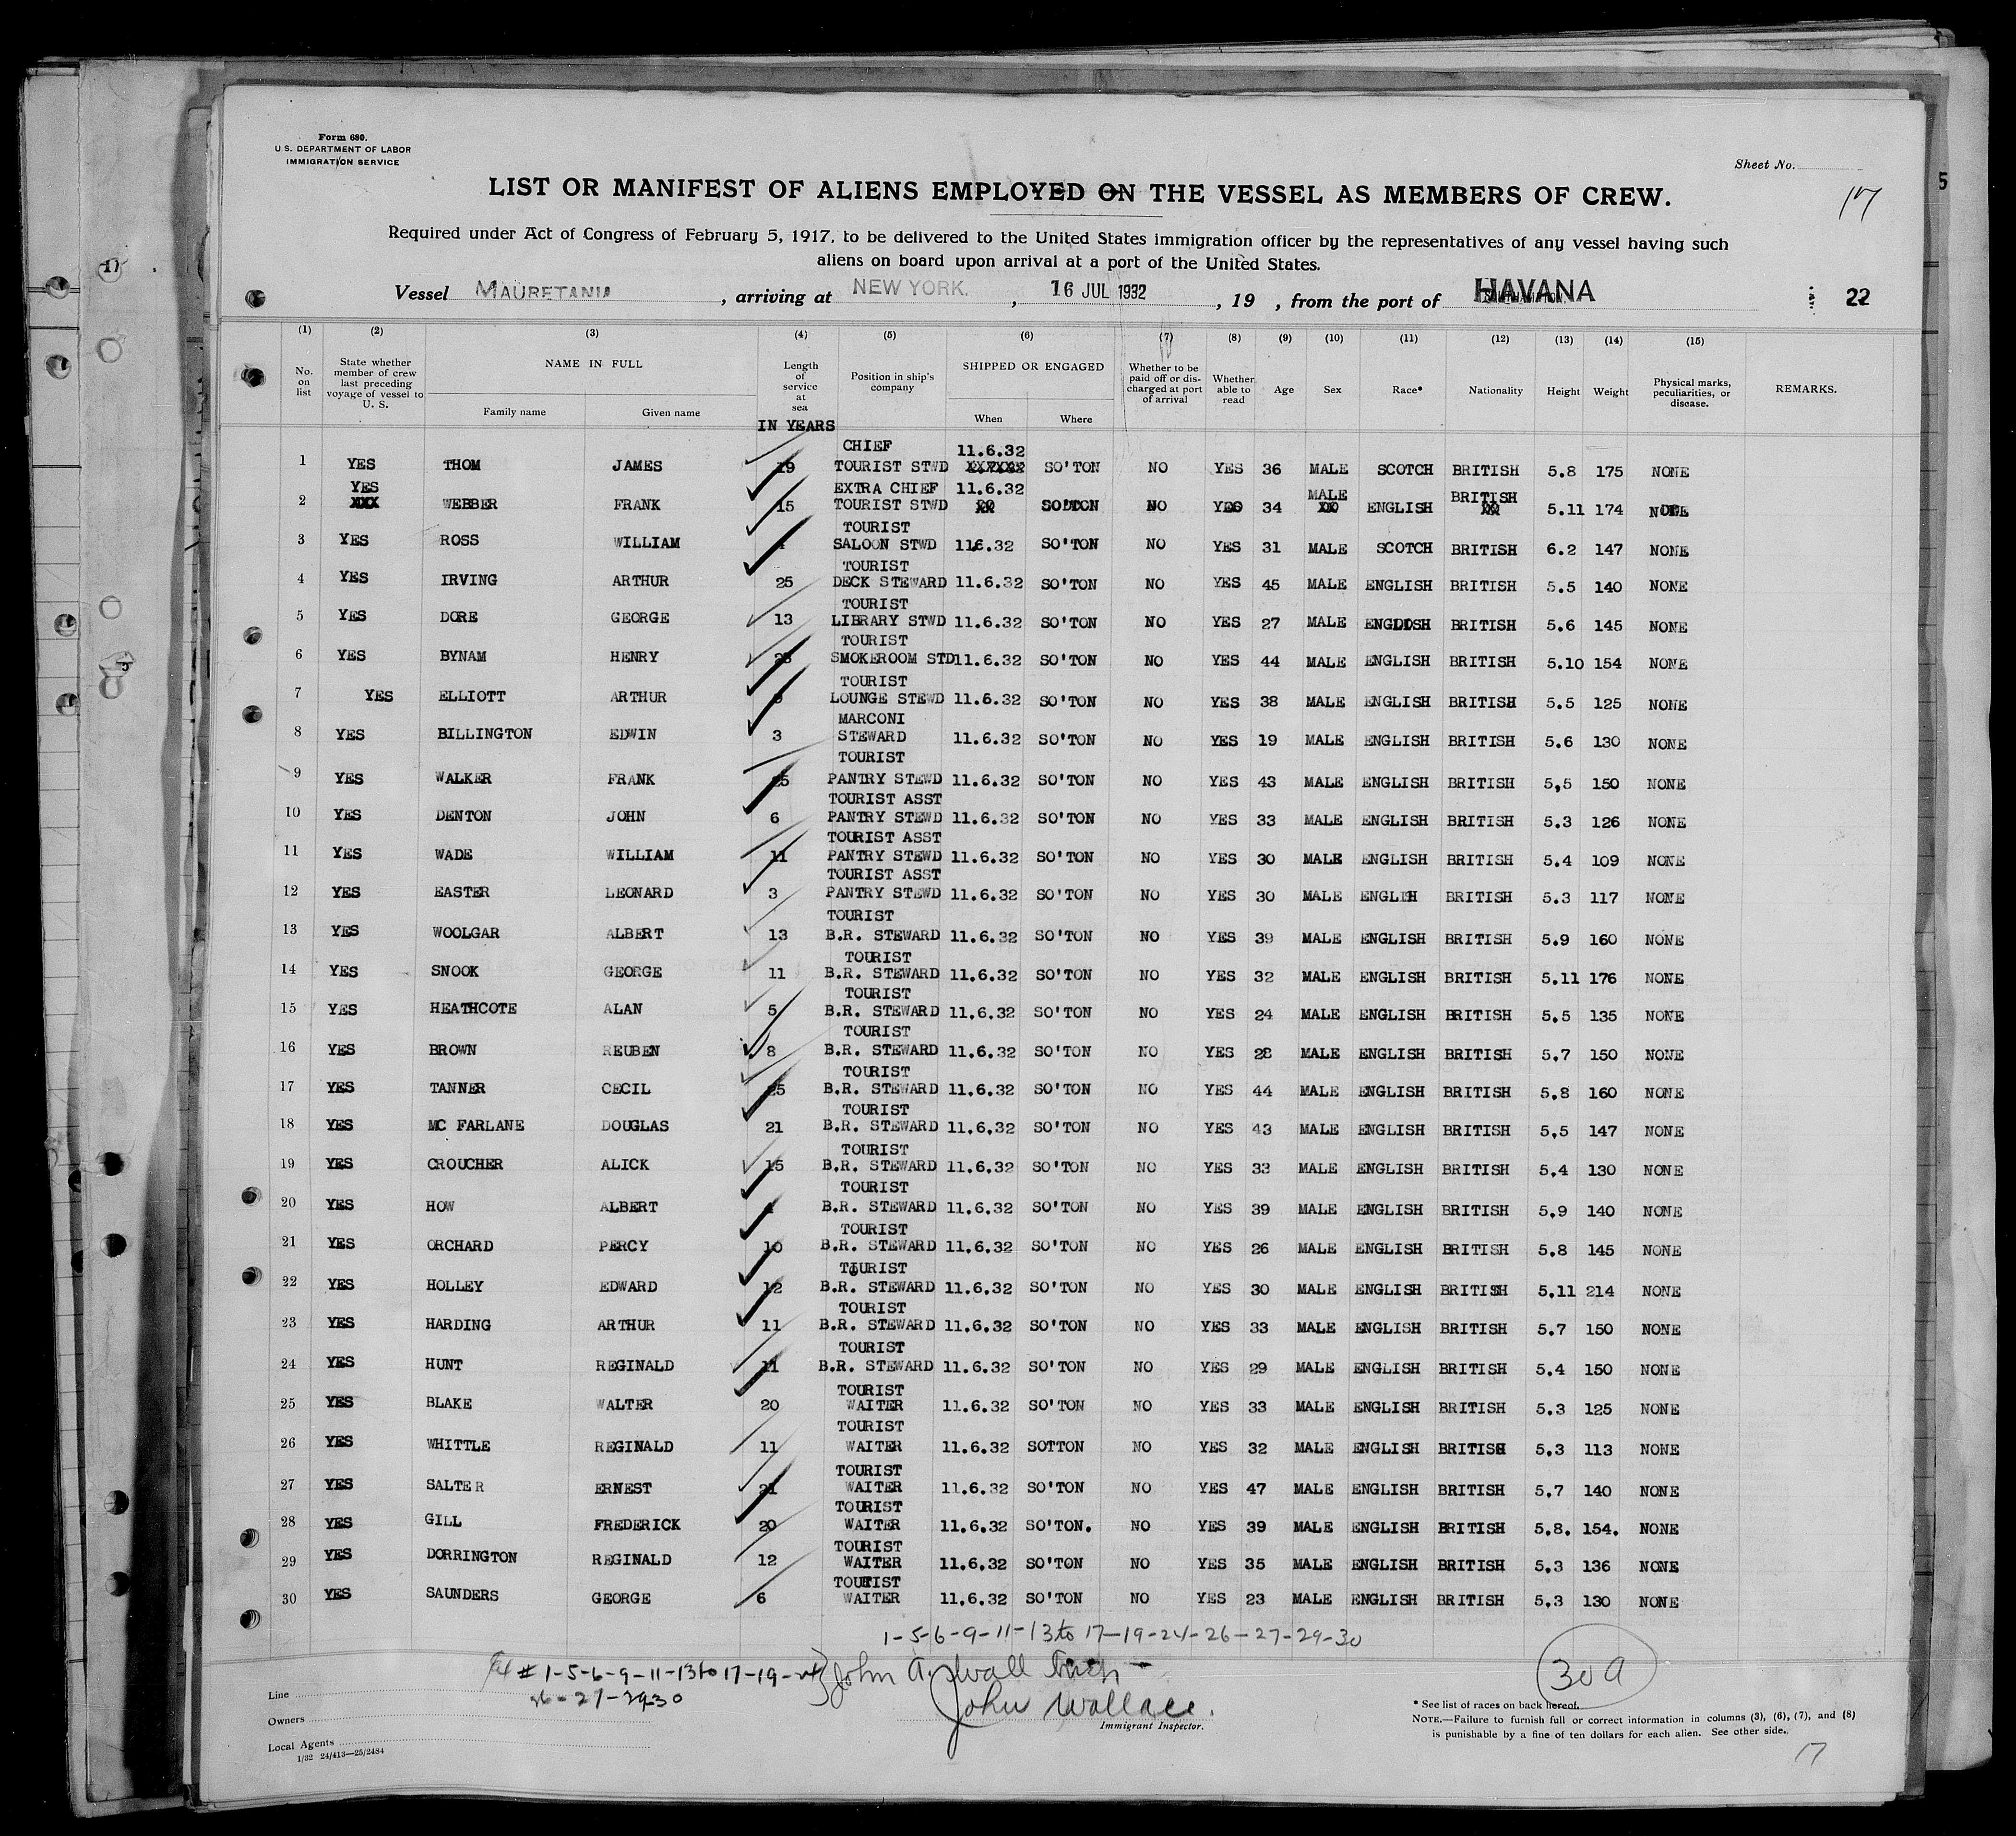 Form 680.
U. S. DEPARTMENT OF LABOR
IMMIGRATION SERVICE
Sheet No.
17
LIST OR MANIFEST OF ALIENS EMPLOYED ON THE VESSEL AS MEMBERS OF CREW.
Required under Act of Congress of February 5, 1917, to be delivered to the United States immigration officer by the representatives of any vessel having such
aliens on board upon arrival at a port of the United States.
Vessel MAURETANIA, arriving at NEW YORK., 16 JUL 1932, 19 , from the port of HAVANA 22
(1) (2) (3) (4) (5) (6) (7) (8) (9) (10) (11) (12) (13) (14) (15)
No. on list State whether member of crew last preceding voyage of vessel to U. S. NAME IN FULL Family name Given name Length of service at sea IN YEARS Position in ship's company SHIPPED OR ENGAGED When Where Whether to be paid off or discharged at port of arrival Whether able to read Age Sex Race* Nationality Height Weight Physical marks, peculiarities, or disease. REMARKS.
1 YES THOM JAMES 19 CHIEF TOURIST STWD 11.6.32 SO'TON NO YES 36 MALE SCOTCH BRITISH 5.8 175 NONE
2 YES WEBBER FRANK 15 EXTRA CHIEF TOURIST STWD 11.6.32 NO 34 MALE ENGLISH BRITISH 5.11 174
3 YES ROSS WILLIAM TOURIST SALOON STWD 11.6.32 SO'TON NO YES 31 MALE SCOTCH BRITISH 6.2 147 NONE
4 YES IRVING ARTHUR 25 TOURIST DECK STEWARD 11.6.32 SO'TON NO YES 45 MALE ENGLISH BRITISH 5.5 140 NONE
5 YES DORE GEORGE 13 TOURIST LIBRARY STWD 11.6.32 SO'TON NO YES 27 MALE ENGDDSH BRITISH 5.6 145 NONE
6 YES BYNAM HENRY TOURIST SMOKEROOM STD 11.6.32 SO'TON NO YES 44 MALE ENGLISH BRITISH 5.10 154 NONE
7 YES ELLIOTT ARTHUR TOURIST LOUNGE STEWD 11.6.32 SO'TON NO YES 38 MALE ENGLISH BRITISH 5.5 125 NONE
8 YES BILLINGTON EDWIN 3 MARCONI STEWARD 11.6.32 SO'TON NO YES 19 MALE ENGLISH BRITISH 5.6 130 NONE
9 YES WALKER FRANK TOURIST PANTRY STEWD 11.6.32 SO'TON NO YES 43 MALE ENGLISH BRITISH 5,5 150 NONE
10 YES DENTON JOHN 6 TOURIST ASST PANTRY STEWD 11.6.32 SO'TON NO YES 33 MALE ENGLISH BRITISH 5.3 126 NONE
11 YES WADE WILLIAM 11 TOURIST ASST PANTRY STEWD 11.6.32 SO'TON NO YES 30 MALE ENGLISH BRITISH 5.4 109 NONE
12 YES EASTER LEONARD 3 TOURIST ASST PANTRY STEWD 11.6.32 SO'TON NO YES 30 MALE ENGLIH BRITISH 5.3 117 NONE
13 YES WOOLGAR ALBERT 13 TOURIST B.R. STEWARD 11.6.32 SO'TON NO YES 39 MALE ENGLISH BRITISH 5.9 160 NONE
14 YES SNOOK GEORGE 11 TOURIST B.R. STEWARD 11.6.32 SO'TON NO YES 32 MALE ENGLISH BRITISH 5.11 176 NONE
15 YES HEATHCOTE ALAN 5 TOURIST B.R. STEWARD 11.6.32 SO'TON NO YES 24 MALE ENGLISH BRITISH 5.5 135 NONE
16 YES BROWN REUBEN 8 TOURIST B.R. STEWARD 11.6.32 SO'TON NO YES 28 MALE ENGLISH BRITISH 5.7 150 NONE
17 YES TANNER CECIL 25 TOURIST B.R. STEWARD 11.6.32 SO'TON NO YES 44 MALE ENGLISH BRITISH 5.8 160 NONE
18 YES MC FARLANE DOUGLAS 21 TOURIST B.R. STEWARD 11.6.32 SO'TON NO YES 43 MALE ENGLISH BRITISH 5.5 147 NONE
19 YES CROUCHER ALICK 15 TOURIST B.R. STEWARD 11.6.32 SO'TON NO YES 33 MALE ENGLISH BRITISH 5.4 130 NONE
20 YES HOW ALBERT TOURIST B.R. STEWARD 11.6.32 SO'TON NO YES 39 MALE ENGLISH BRITISH 5.9 140 NONE
21 YES ORCHARD PERCY 10 TOURIST B.R. STEWARD 11.6.32 SO'TON NO YES 26 MALE ENGLISH BRITISH 5.8 145 NONE
22 YES HOLLEY EDWARD 12 TOURIST B.R. STEWARD 11.6.32 SO'TON NO YES 30 MALE ENGLISH BRITISH 5.11 214 NONE
23 YES HARDING ARTHUR 11 TOURIST B.R. STEWARD 11.6.32 SO'TON NO YES 33 MALE ENGLISH BRITISH 5.7 150 NONE
24 YES HUNT REGINALD 11 TOURIST B.R. STEWARD 11.6.32 SO'TON NO YES 29 MALE ENGLISH BRITISH 5.4 150 NONE
25 YES BLAKE WALTER 20 TOURIST WAITER 11.6.32 SO'TON NO YES 33 MALE ENGLISH BRITISH 5.3 125 NONE
26 YES WHITTLE REGINALD 11 TOURIST WAITER 11.6.32 SOTTON NO YES 32 MALE ENGLISH BRITISH 5.3 113 NONE
27 YES SALTER ERNEST 21 TOURIST WAITER 11.6.32 SO'TON NO YES 47 MALE ENGLISH BRITISH 5.7 140 NONE
28 YES GILL FREDERICK 20 TOURIST WAITER 11.6.32 SO'TON. NO YES 39 MALE ENGLISH BRITISH 5.8. 154. NONE
29 YES DORRINGTON REGINALD 12 TOURIST WAITER 11.6.32 SO'TON NO YES 35 MALE ENGLISH BRITISH 5.3 136 NONE
30 YES SAUNDERS GEORGE 6 TOURIST WAITER 11.6.32 SO'TON NO YES 23 MALE ENGLISH BRITISH 5.3 130 NONE
1-5-6-9-11-13 to 17-19-24-26-27-29-30
# 1-5-6-9-11-13 to 17-19-24 John A.
26-27-29-30
John Wallace.
Immigrant Inspector.
30 a
Line
Owners
Local Agents
1/32 24/413—25/2484
* See list of races on back hereof.
NOTE.—Failure to furnish full or correct information in columns (3), (6), (7), and (8)
is punishable by a fine of ten dollars for each alien. See other side.
17